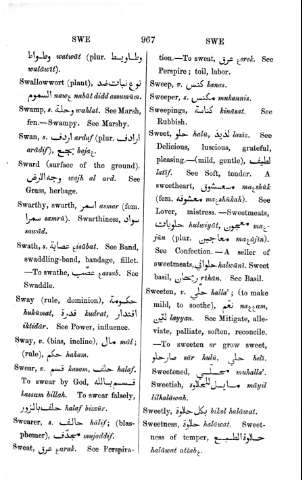 SWE 967 SWE
وطاويط watwát (plur. وطواط
watáwít).
Swallowwort (plant), نوع نبات ضد
السموم
Swamp, s. وحلة wahlat. See Marsh,
fen.—Swampy. See Marshy.
Swan, s. اردف arduf (plur. ارادف
arádif), بجع baja.
Sward (surface of the ground).
وجه الارض wajh al ard. See
Grass, herbage.
Swarthy, swurth, اسمر asmar (fem.
سمرا samrá). Swarthiness, سواد
sawád
Swath, s. عصابة See Band,
swaddling-band, bandage, fillet.
—To swathe, عصب See
Swaddle.
Sway (rule, dominion), حكومة
hukúmat, قدرة kudrat, اقتدار
iktidár. See Power, influence.
Sway, v. (bias, incline), مال mál;
(rule), حكم hakam.
Swear, v. قسم kasam, حلف halaf.
To swear by God, قسم بالله
kassam billah. To swear falsely,
حلف بالزور halaf bizúr.
Swearer, s. حالف hálif; (blas-
phemer), مجدف mujaddif.
Sweat, s. عرق arak. See Perspira-
tion.—To sweat, عرق arak. See
Perspire; toil, labor.
Sweep, v. كنس kanas.
Sweeper, s. مكنس mukannis.
Sweepings, كناسة kinásat. See
Rubbish.
Sweet, حلو halú, لذيذ lazíz. See
Delicious, luscious, grateful,
pleasing.—(mild, gentle), لطيف
latíf. See Soft, tender. A
sweetheart, معشوق
(fem. معشوقه See
Lover, mistress.—Sweetmeats,
حلويات halwiyát, معجون
jún (plur. معاجين
See Confection.—A seller of
sweetmeats, حلواني halwání. Sweet
basil, ريحان ríhán. See Basil.
Sweeten, v. حلي halla; (to make
mild, to soothe), نعم
لين layyan. See Mitigate, alle-
viate, palliate, soften, reconcile.
—To sweeten or grow sweet,
صار حلو sár hulú, حلي heli.
Sweetened, محلي muhalla.
Sweetish, مايل للحلاوة máyil
lilhaláwah.
Sweetly, بكل حلاوة bikul haláwat.
Sweetness, حلاوة haláwat. Sweet-
ness of temper, حلاوة الطبع
haláwat